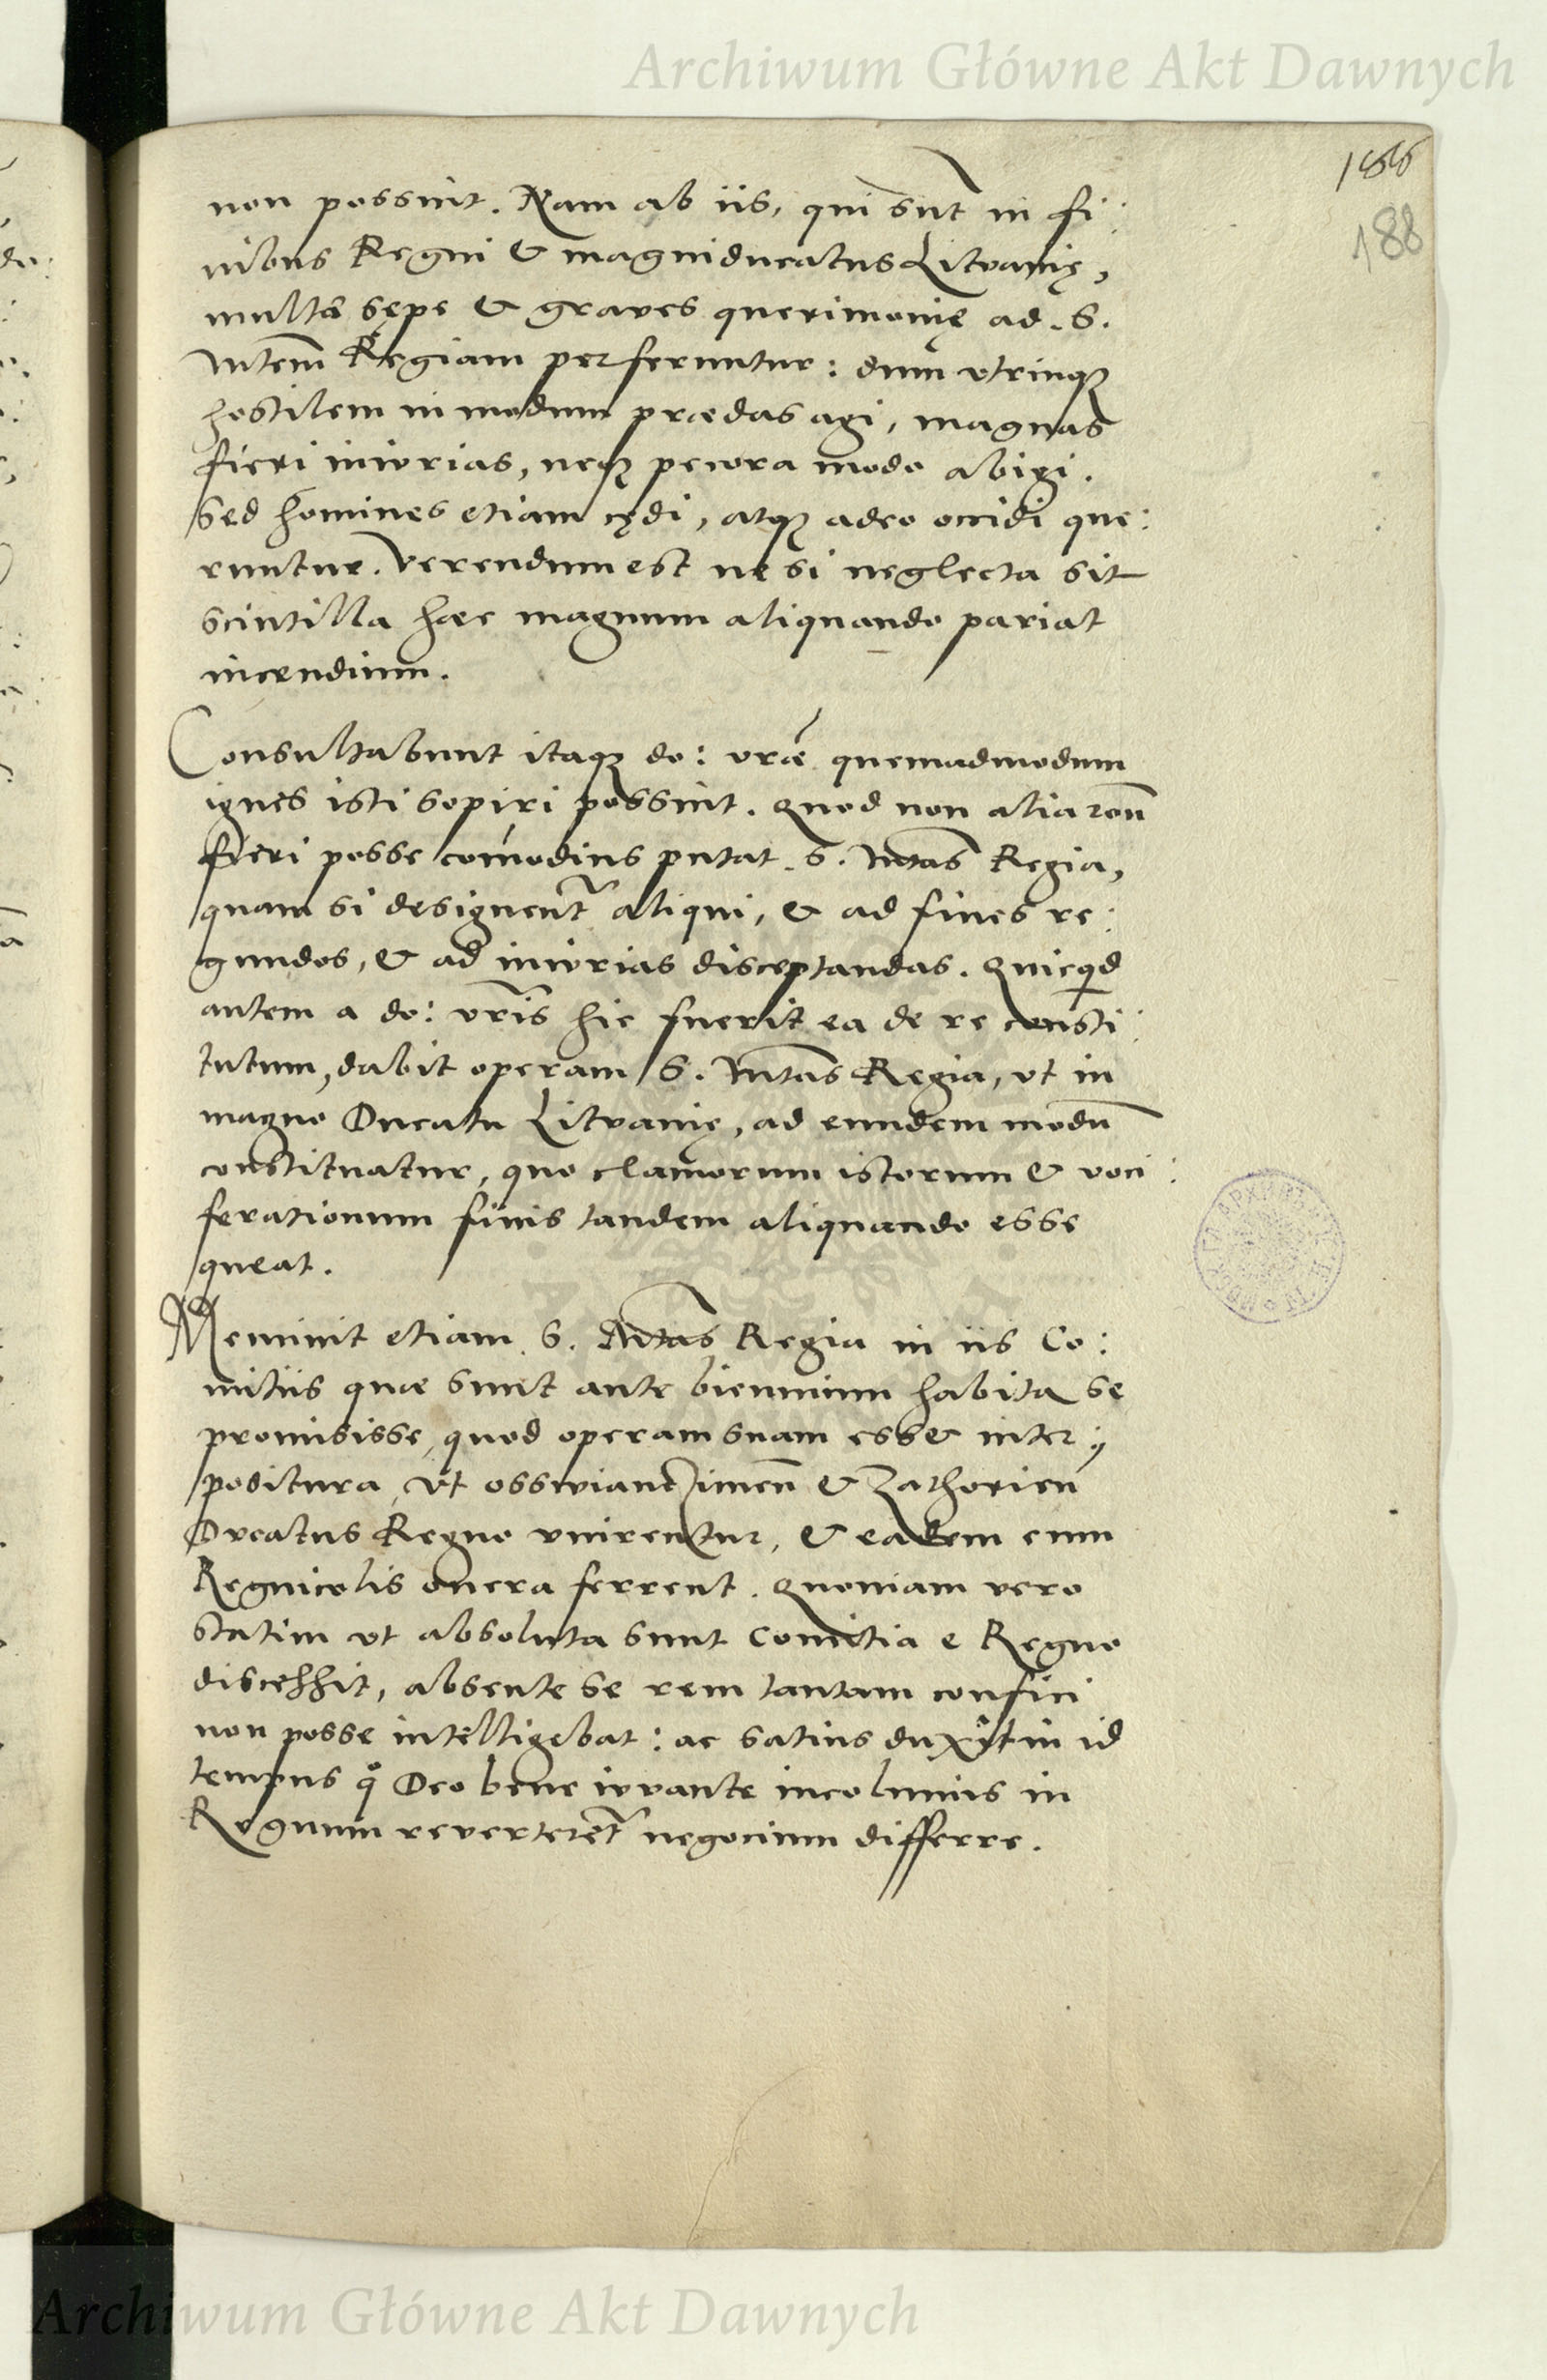 Archiwum Główne Akt Dawnych
188
non possint. Nam ab iis, qui sūt in fi:
nibus Regni & magniducatus Litvanię,
multæ sępe & graves querimonię ad. S.
Mtem̄ Regiam perferuntur: dum vtrinqꝫ
hostilem in modum prædas agi, magnas
fieri iniurias, neqꝫ pecora modo abigi.
sed homines etiam cędi, atqꝫ adeo occidi que:
runtur. Verendum est ne si neglecta sit
scintilla hæc magnum aliquando pariat
incendium.
Consultabunt itaqꝫ do: vræ̃ quemadmodum
ignes isti sopiri possint. Quod non alia roñ
fieri posse com̄odius putat. S. Mtas̄ Regia,
quam si designent̃ aliqui, & ad fines re:
gundos, & ad iniurias disceptandas. Quicqͥd
antem a do: vrĩs hic fuerit ea de re consti:
tutum, dabit operam S. Mtas̄ Regia, vt in
magno Ducatu Litvanię, ad eundem modū
constituatur, quo clamorum istorum & voci:
ferationum finis tandem aliquando esse
queat.
Meminit etiam. S. Mtas̄ Regia in iis Co:
mitiis quæ sunt ante biennium habita se
promisisse, quod operam suam esset inter:
positura, vt osswiantzimeñ & Zathorieñ
Ducatus Regno vnirentur, & eadem cum
Regnicolis onera ferrent. Quoniam vero
statim vt absoluta sunt Comitia e Regno
discessit, absente se rem tantam confici
non posse intelligebat: ac satius duxit in id
tempus q̊ Deo bene iuvante incolumis in
Regnum reverteret̃ negocium differre.
Archiwum Główne Akt Dawnych